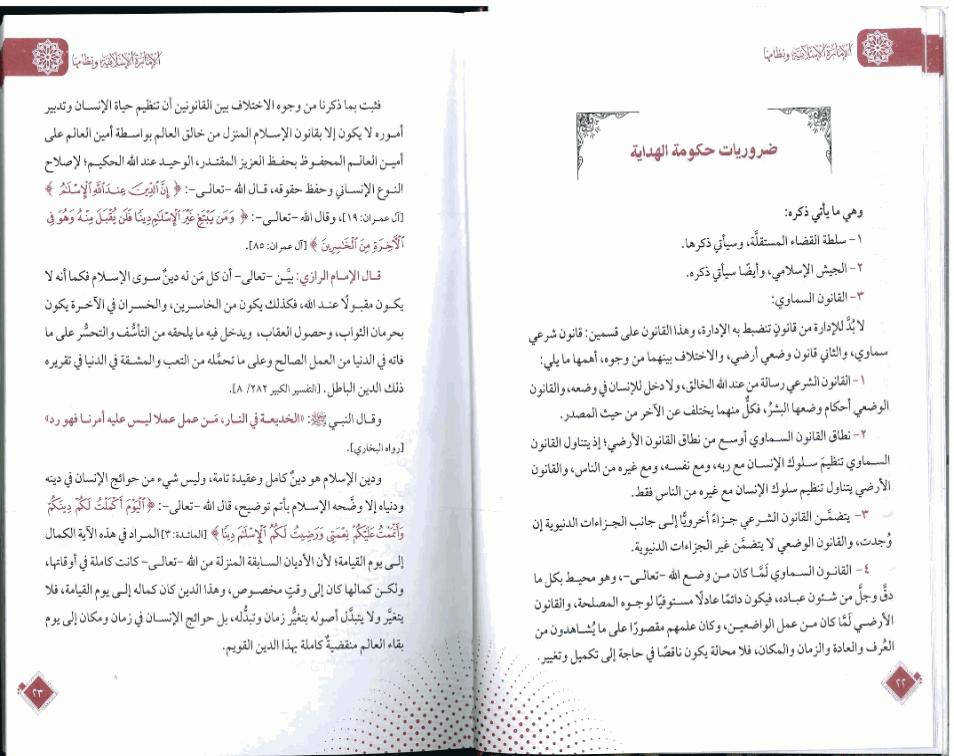 الإمارة الإسلامية ونظامها
ضروريات حكومة الهداية
وهي ما يأتي ذكره:
١- سلطة القضاء المستقلَّة، وسيأتي ذكرها.
٢- الجيش الإسلامي، وأيضًا سيأتي ذكره.
٣- القانون السماوي:
لا بُدَّ للإدارة من قانونٍ تنضبط به الإدارة، وهذا القانون على قسمين: قانون شرعي
سماوي، والثاني قانون وضعي أرضي، والاختلاف بينهما من وجوه، أهمها ما يلي:
١- القانون الشرعي رسالة من عند الله الخالق، ولا دخل للإنسان في وضعه، والقانون
الوضعي أحكام وضعها البشرُ، فكلٌّ منهما يختلف عن الآخر من حيث المصدر.
٢- نطاق القانون السماوي أوسع من نطاق القانون الأرضي؛ إذ يتناول القانون
السماوي تنظيمَ سلوك الإنسان مع ربه، ومع نفسه، ومع غيره من الناس، والقانون
الأرضي يتناول تنظيم سلوك الإنسان مع غيره من الناس فقط.
٣- يتضمَّن القانون الشرعي جزاءً أخرويًّا إلى جانب الجزاءات الدنيوية إن
وُجدت، والقانون الوضعي لا يتضمَّن غير الجزاءات الدنيوية.
٤- القانون السماوي لَمَّا كان من وضع الله -تعالى-، وهو محيط بكل ما
دقَّ وجلَّ من شئون عباده، فيكون دائمًا عادلًا مستوفيًا لوجوه المصلحة، والقانون
الأرضي لَمَّا كان من عمل الواضعين، وكان علمهم مقصورًا على ما يُشاهدون من
العُرف والعادة والزمان والمكان، فلا محالة يكون ناقصًا في حاجة إلى تكميل وتغيير.
٢٢
الإمارة الإسلامية ونظامها
فثبت بما ذكرنا من وجوه الاختلاف بين القانونين أن تنظيم حياة الإنسان وتدبير
أموره لا يكون إلا بقانون الإسلام المنزل من خالق العالم بواسطة أمين العالم على
أمين العالم المحفوظ بحفظ العزيز المقتدر، الوحيد عند الله الحكيم؛ لإصلاح
النوع الإنساني وحفظ حقوقه، قال الله -تعالى-: ﴿ إِنَّ ٱلدِّينَ عِندَ ٱللَّهِ ٱلْإِسْلَٰمُ ﴾
[آل عمران: ١٩]، وقال الله -تعالى-: ﴿ وَمَن يَبْتَغِ غَيْرَ ٱلْإِسْلَٰمِ دِينًا فَلَن يُقْبَلَ مِنْهُ وَهُوَ فِي
ٱلْآخِرَةِ مِنَ ٱلْخَٰسِرِينَ ﴾ [آل عمران: ٨٥].
قال الإمام الرازي: بيَّن -تعالى- أن كل مَن له دينٌ سوى الإسلام فكما أنه لا
يكون مقبولًا عند الله، فكذلك يكون من الخاسرين، والخسران في الآخرة يكون
بحرمان الثواب، وحصول العقاب، ويدخل فيه ما يلحقه من التأسُّف والتحسُّر على ما
فاته في الدنيا من العمل الصالح وعلى ما تحمَّله من التعب والمشقة في الدنيا في تقريره
ذلك الدين الباطل. [التفسير الكبير ٢٨٢/ ٨].
وقال النبي ﷺ: «الخديعة في النار، مَن عمل عملا ليس عليه أمرنا فهو رد»
[رواه البخاري].
ودين الإسلام هو دينٌ كامل وعقيدة تامة، وليس شيء من حوائج الإنسان في دينه
ودنياه إلا وضَّحه الإسلام بأتم توضيح، قال الله -تعالى-: ﴿ ٱلْيَوْمَ أَكْمَلْتُ لَكُمْ دِينَكُمْ
وَأَتْمَمْتُ عَلَيْكُمْ نِعْمَتِي وَرَضِيتُ لَكُمُ ٱلْإِسْلَٰمَ دِينًا ﴾ [المائدة: ٣] المراد في هذه الآية الكمال
إلى يوم القيامة؛ لأن الأديان السابقة المنزلة من الله -تعالى- كانت كاملة في أوقاتها،
ولكن كمالها كان إلى وقتٍ مخصوص، وهذا الدين كان كماله إلى يوم القيامة، فلا
يتغيَّر ولا يتبدَّل أصوله بتغيُّر زمان وتبدُّله، بل حوائج الإنسان في زمان ومكان إلى يوم
بقاء العالم منقضيةٌ كاملة بهذا الدين القويم.
٢٣